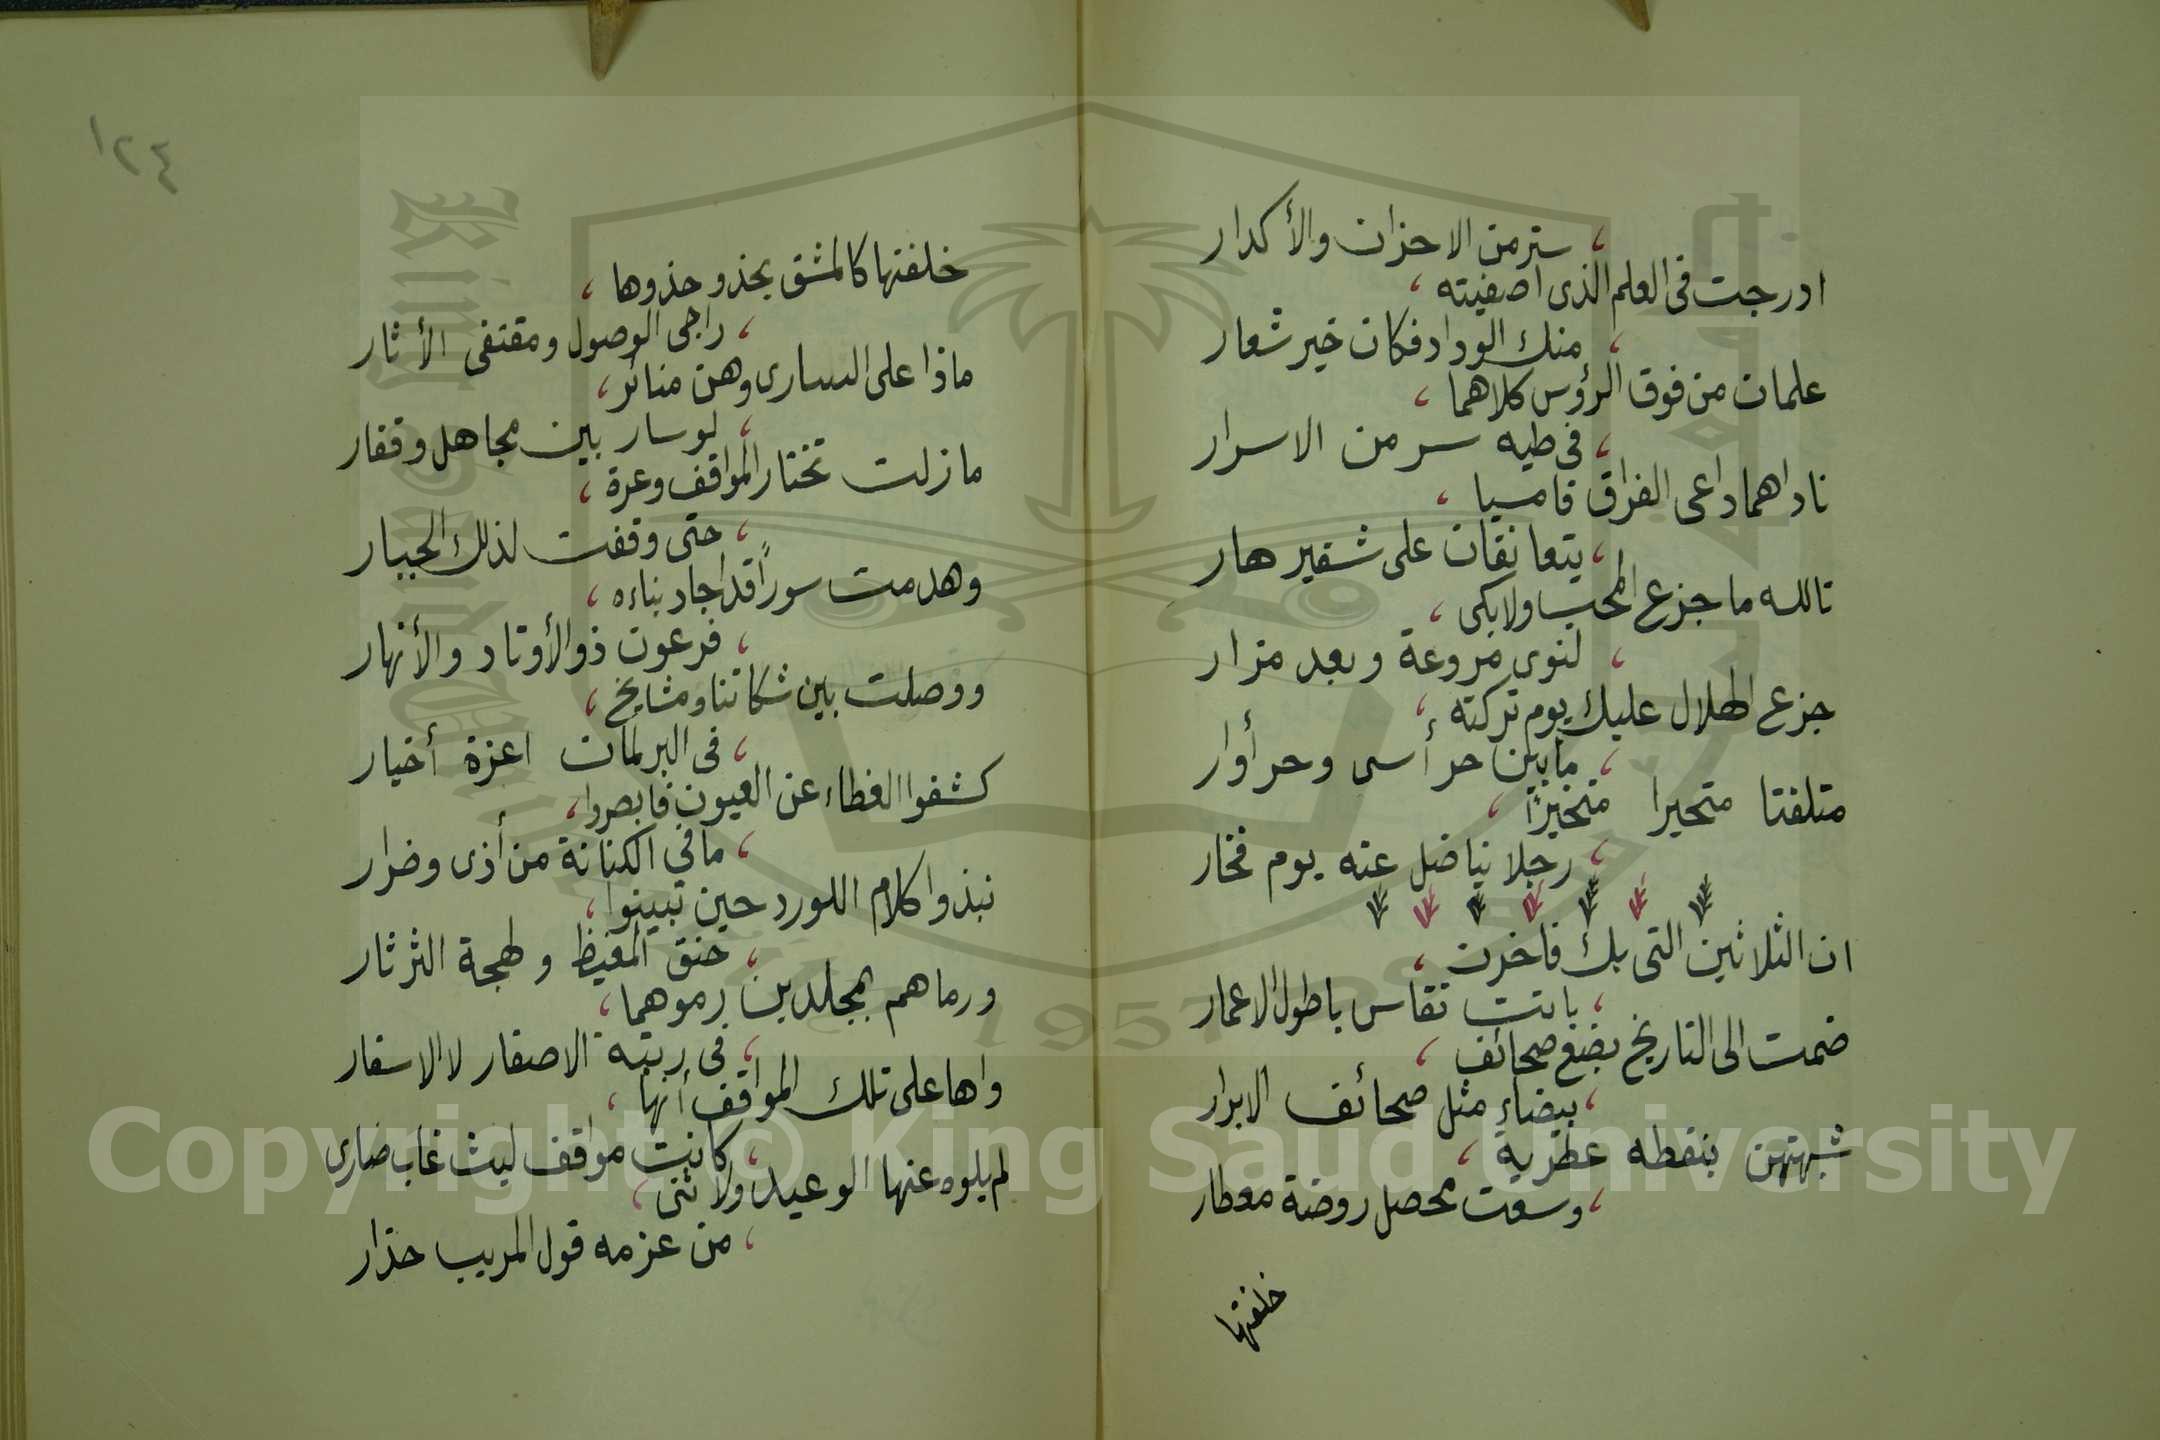 ستر من الاحزان والأكدار
ادرجت فى العلم الذى اصفيته
منك الوداد فكان خير شعار
علمان من فوق الرؤس كلاهما
فى طيه سر من الاسرار
ناداهما داعى الفراق فامسيا
يتعانقان على شفير هار
تالله ما جزع المحب ولا بكى
لنوى مروعة وبعد مزار
جزع الهلال عليك يوم تركته
ما بين حر أسى وحر أوار
متلفتا متحيرا متخيرًا
رجلا يناضل عنه يوم فخار
ان الثلاثين التى بك فاخرت
باتت تقاس باطول الاعمار
ضمت الى التاريخ بضع صحائف
بيضاء مثل صحائف الابرار
شبهتهن بنقطه عطرية
وسعت محصل روضة معطار
خلفتها
١٢٤
خلفتها كالمشق يحذو حذوها
راجى الوصول ومقتفى الأثار
ماذا على السارى وهن منائر
لو سار بين مجاهل وقفار
ما زلت تختار المواقف وعرة
حتى وقفت لذلك الجبار
وهدمت سورًا قد اجاد بناءه
فرعون ذو الأوتاد والأنهار
ووصلت بين شكاتنا ومشايخ
فى البرلمان اعزة أخيار
كشفوا الغطاء عن العيون فابصروا
ما فى الكنانة من أذى وضرار
نبذوا كلام اللورد حين تبينوا
حنق المغيظ ولهجة الثرثار
ورماهم بمجلدين رموهما
فى ربتة الاصفار لا الاسفار
واها على تلك المواقف أنها
كانت مواقف ليث غاب ضارى
لم يلوه عنها الوعيد ولا ثنى
من عزمه قول المريب حذار
King Saud University
1957
Copyright © King Saud University